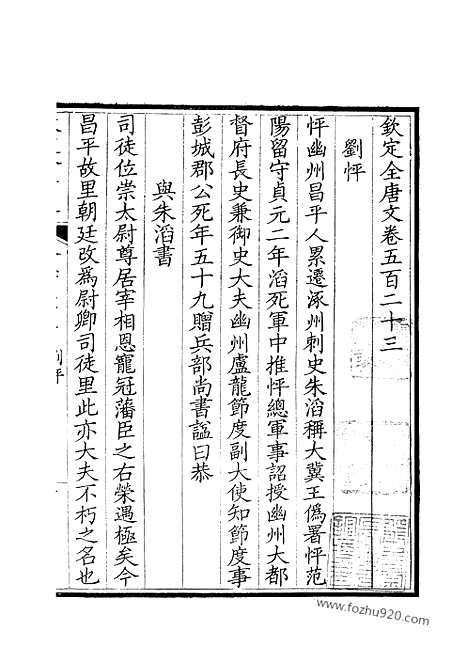 欽定全唐文卷五百二十三
劉怦
怦幽州昌平人累遷涿州刺史朱滔稱大冀王偽署怦范
陽留守貞元二年滔死軍中推怦總軍事詔授幽州大都
督府長史兼御史大夫幽州盧龍節度副大使知節度事
彭城郡公死年五十九贈兵部尚書謚曰恭
與朱滔書
司徒位崇太尉尊居宰相恩寵冠藩臣之右榮遇極矣今
昌平故里朝廷改爲尉卿司徒里此亦大夫不朽之名也
www.fozhu920.com